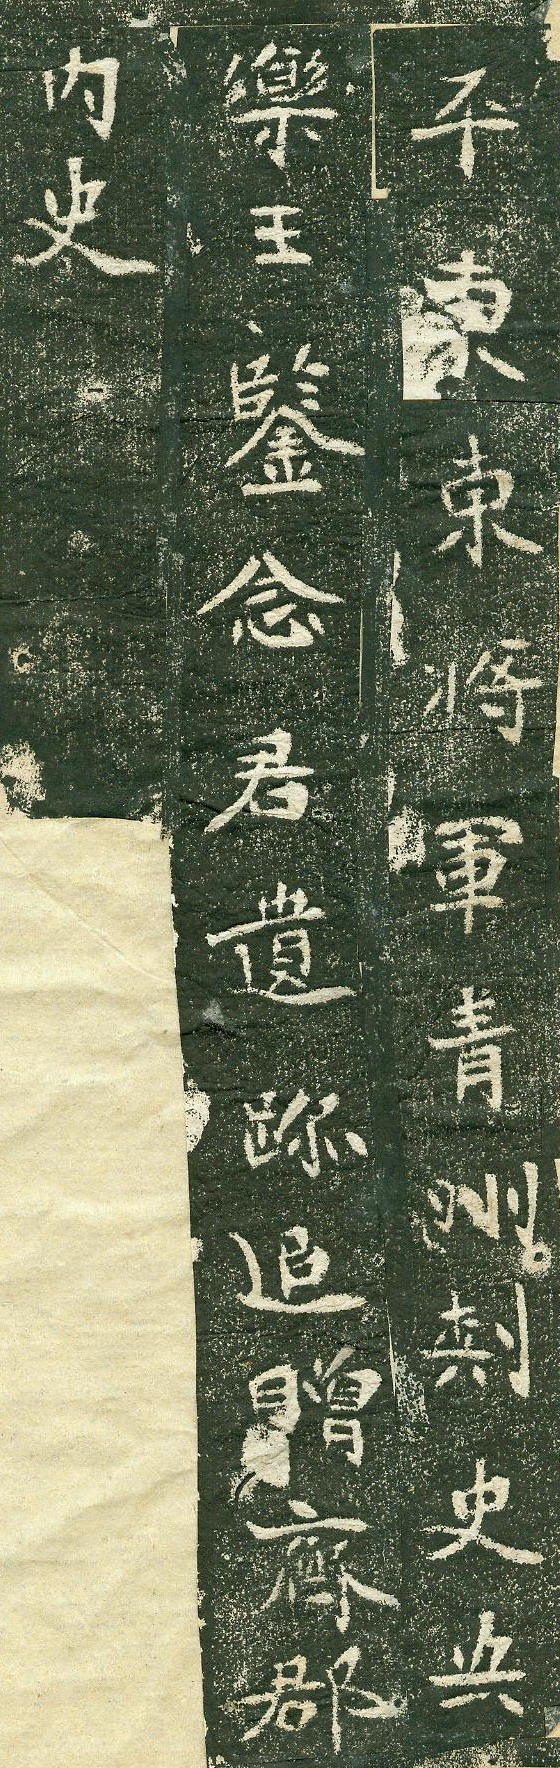 平東東將軍青州刺史兵
樂王鑒念君遺跡追贈齊郡
内史